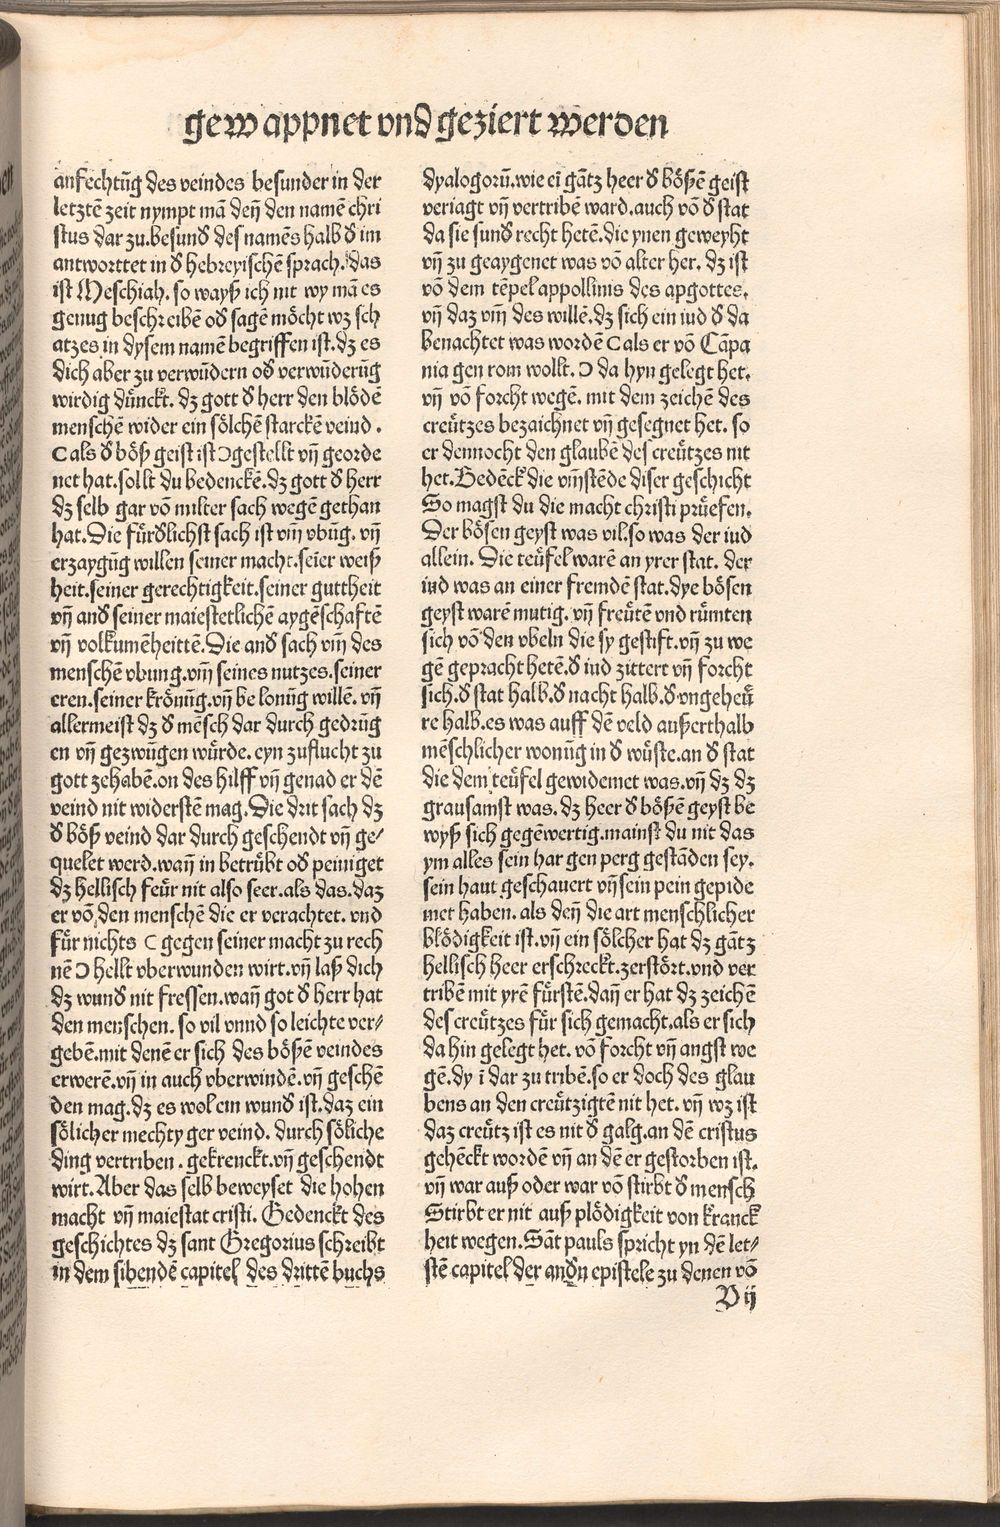 gewappnet vnd geziert werden
anfechtu̅g des veindes besunder in der
letztē zeit nympt mā deñ den namē chri
stus dar zu.besund des namēs halb d im
antworttet in d hebreyischē sprach. das
ist Meschiah. so wayß ich nit wy mā es
genug beschreibē od sagē möcht wz sch
atzes in dysem namē begriffen ist.dz es
dich aber zu verwūdern od verwūderūg
wirdig dünckt. dz gott d herr den blödē
menschē wider ein sölchē starckē veind .
C als d böß geist ist Ɔ gestellt vñ georde
net hat.sollt du bedenckē.dz gott d herr
dz selb gar vō milter sach wegē gethan
hat.Die fürdlichst sach ist vm̄ vbūg. vñ
erzaygūg willen seiner macht.seīer weiß
heit.seiner gerechtigkeit.seiner guttheit
vñ and seiner maiestetlichē aygēschaftē
vñ volkumēheittē.Die and sach vm̄ des
menschē vbung.vm̄ seines nutzes.seiner
eren.seiner krönūg.vñ be lonūg willē. vñ
allermeist dz d mēsch dar durch gedrūg
en vñ gezwūgen würde. eyn zuflucht zu
gott zehabē.on des hilff vñ genad er dē
veind nit widerstē mag.Die drit sach dz
d böß veind dar durch geschendt vñ ge/
quelet werd.wañ in betrübt od peiniget
dz hellisch feür nit also seer.als das.daz
er vō den menschē die er verachtet. vnd
für nichts C gegen seiner macht zu rech
nē Ɔ hellt vberwunden wirt.vñ laß dich
dz wund nit fressen.wañ got d herr hat
den menschen. so vil vnnd so leichte ver/
gebē.mit denē er sich des bößē veindes
erwerē.vñ in auch vberwindē.vñ geschē
den mag.dz es wol ein wund ist.daz ein
sölicher mechtyger veind. durch söliche
ding vertriben . gekrenckt.vñ geschendt
wirt.Aber das selb beweyset die hohen
macht vñ maiestat cristi. Gedenckt des
geschichtes dz sant Gregorius schreibt
in dem sibendē capitel des drittē buchs
dyalogorū.wie eī gātz heer d bößē geist
veriagt vñ vertribē ward.auch vō d stat
da sie sund recht hetē.die ynen geweyht
vñ zu geaygenet was vō alter her. dz ist
vō dem tēpel appollinis des apgottes.
vñ daz vm̄ des willē.dz sich ein iud d da
benachtet was wordē C als er vō Cāpa
nia gen rom wollt. Ɔ da hyn gelegt het.
vñ vō forcht wegē. mit dem zeichē des
creützes bezaichnet vñ gesegnet het. so
er dennocht den glaubē des creützes nit
het.Bedēck die vm̄stēde diser geschicht
So magst du die macht christi prüefen.
Der bösen geyst was vil.so was der iud
allein. Die teüfel warē an yrer stat. der
iud was an einer fremdē stat.dye bösen
geyst warē mutig. vñ freütē vnd rümten
sich vō den vbeln die sy gestift.vñ zu we
gē gepracht hetē.d iud zittert vñ forcht
sich.d stat halb.d nacht halb.d vngeheü
re halb.es was auff dē veld außerthalb
mēschlicher wonūg in d wüste.an d stat
die dem teüfel gewidemet was.vñ dz dz
grausamst was. dz heer d bößē geyst be
wyß sich gegēwertig.mainst du nit das
ym alles sein har gen perg gestāden sey.
sein haut geschauert vñ sein pein gepide
met haben. als deñ die art menschlicher
blödigkeit ist.vñ ein sölcher hat dz gātz
hellisch heer erschreckt.zerstört.vnd ver
tribē mit yrē fürstē.dañ er hat dz zeichē
des creützes für sich gemacht.als er sich
da hin gelegt het. vō forcht vñ angst we
gē.dy ī dar zu tribē.so er doch des glau
bens an den creützigtē nit het. vñ wz ist
daz creütz ist es nit d galg.an dē cristus
gehēckt wordē vñ an dē er gestorben ist.
vñ war auß oder war vō stirbt d mensch
Stirbt er nit auß plödigkeit von kranck
heit wegen.Sāt pauls spricht yn dē let/
stē capitel der andn epistele zu denen vō
V ij